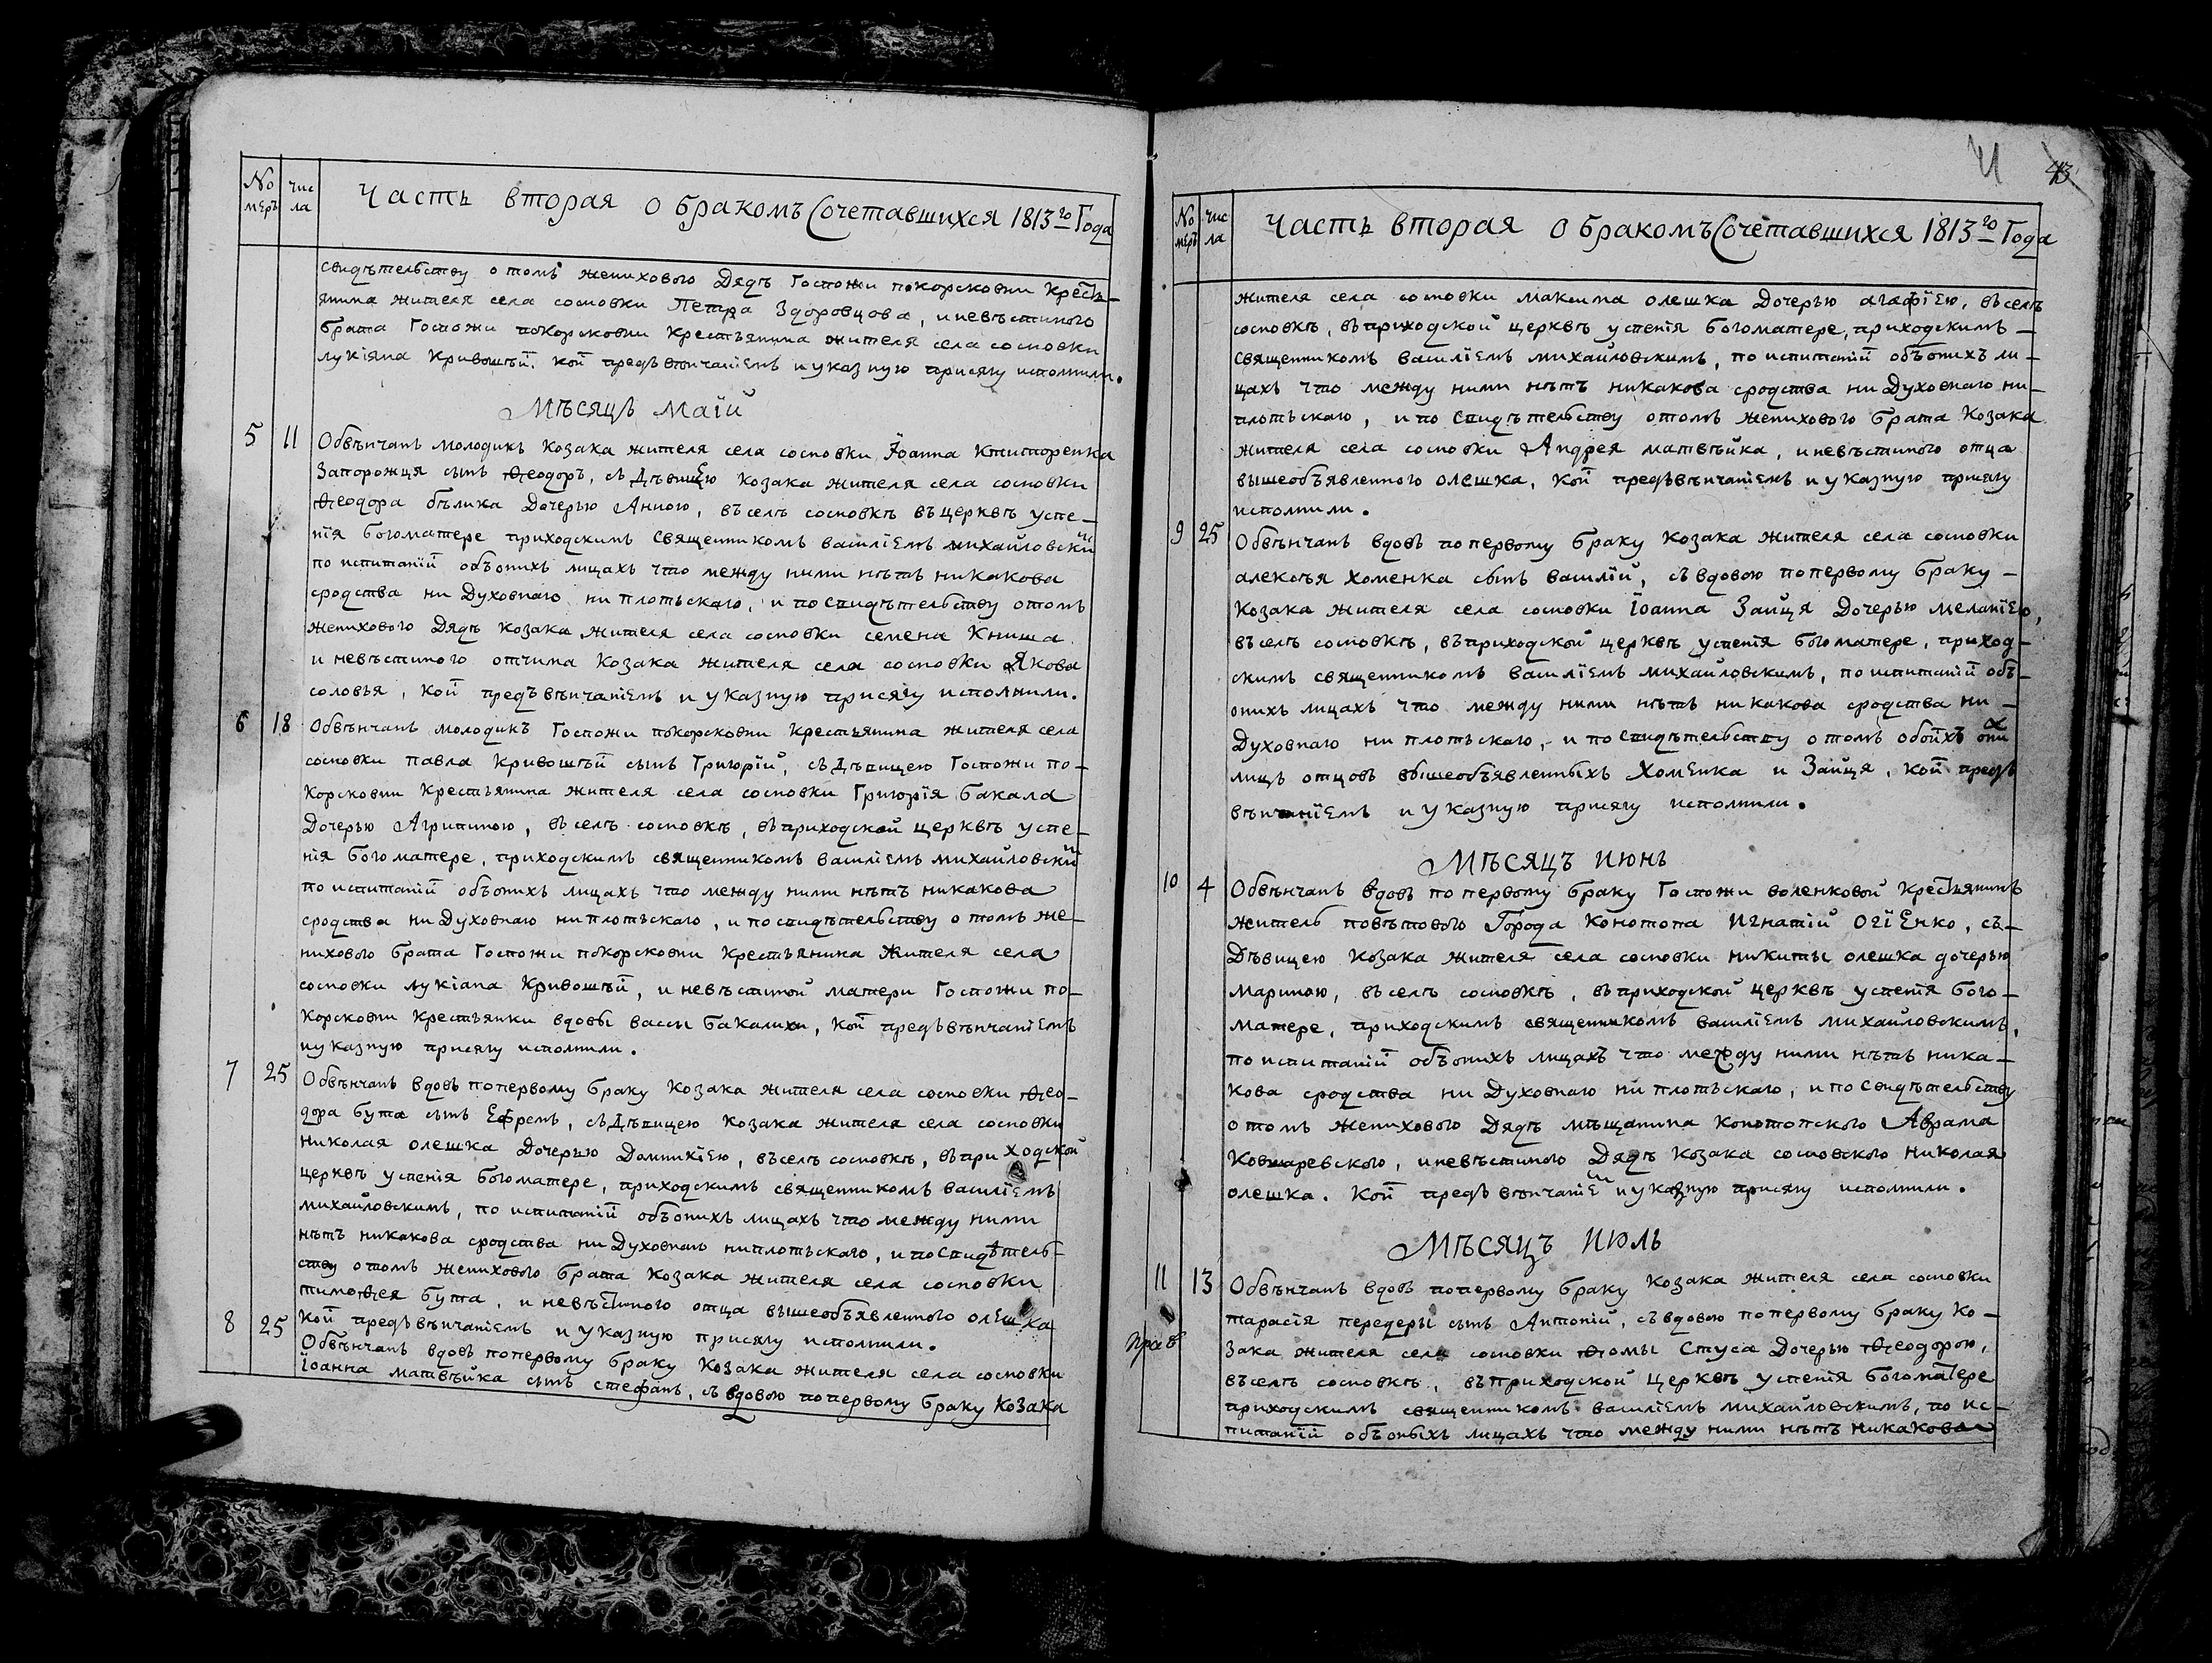 No
меръ
чис
ла
Часть вторая о бракомъ Сочетавшихся 1813 го Года
свидѣтелству отомъ женихового Дядѣ Госпожи покорсковни крестъ-
янина жителя села сосновки Петра Здоровцова, иневѣстиного
брата Госпожи покорсковни крестъянина жителя села сосновки
лукіяна Кривошѣй. кой предъвѣнчаніемъ иуказную присягу исполнили.
Мѣсяцъ маій
5 11 Обвѣнчанъ молодикъ Козака жителя села сосновки Їоанна Ктиторенка
Запорожця сынъ Ѳеодоръ, съ Дѣвицею козака жителя села сосновки
Ѳеодора бѣлика Дочерью Анною, въселѣ сосновкѣ въцерквѣ успе-
нія богоматере приходскимъ Священникомъ василіемъ михайловский
по испитаній обѣонихъ лицахъ что между ними нѣтъ никакова
сродства ни Духовнаго ни плотьскаго, и по Свидѣтельству отомъ
женихового Дядѣ козака жителя села сосновки семена Книша
и невѣстиного отчима козака жителя села сосновки Якова
соловъя, кой предъвѣнчаніемъ и указную присягу исполнили.
6 18 Обвѣнчанъ молодикъ Госпожи покорсковни крестъянина жителя села
сосновки павла Кривошѣй сынъ Григорій, съ Дѣвицею Госпожи по-
корсковни крестъянина жителя села сосновки Григорія бакала
Дочерью Агрипиною, въ селѣ сосновкѣ, въприходской церквѣ успе-
нія богоматере, приходскимъ священникомъ василіемъ михайловский
по испитаній обѣонихъ лицахъ что между ними нѣтъ никакова
сродства ни Духовнаго ниплотьскаго, и посвидѣтельству о томъ же-
нихового брата Госпожи покорсковни крестъянина жителя села
сосновки лукіана Кривошѣй, и невѣстиной матери Госпожи по-
корсковни крестъянки вдовы васси бакалихи, кой предъвѣнчаніемъ
иуказную присягу исполнили.
7 25 Обвѣнчанъ вдовъ попервому браку козака жителя села сосновки Ѳео-
дора бута сынъ Ефремъ, съДѣвицею козака жителя села сосновки
николая олешка Дочерью Домникіею, въселѣ сосновкѣ, въприходской
церквѣ успенія богоматере, приходскимъ священникомъ василіемъ
михайловскимъ, по испитаній обѣонихъ лицахъ что между ними
нѣтъ никакова сродства ни Духовнаго ниплотьскаго, и поСвидѣтель-
ству отомъ женихового брата козака жителя села сосновки
тимоѳея бута, и невѣстиного отца вышеобъявленного олешка
кой предъвѣнчаніемъ и указную присягу исполнили.
8 25 Обвѣнчанъ вдовъ попервому браку козака жителя села сосновки
їоанна матвѣйка сынъ стефанъ, съ вдовою попервому браку козака
43
No
меръ
чис
ла
Часть вторая о бракомъ Сочетавшихся 1813 го Года
жителя села сосновки максима олешка Дочерью агафіею, въселѣ
сосновкѣ, въприходской церквѣ успенія богоматере, приходскимъ -
священникомъ василіемъ михайловскимъ, по испитаній обѣонихъ ли-
цахъ что между ними нѣтъ никакова сродства ни Духовнаго ни-
плотьскаго, и по Свидѣтельству отомъ женихового брата козака
жителя села сосновки Андрея матвѣйка, иневѣстиного отца
вышеобъявленного олешка, кой предъвѣнчаніемъ и указную присягу
исполнили.
9 25 Обвѣнчанъ вдовъ попервому браку козака жителя села сосновки
алексѣя хоменка сынъ василій, съвдовою попервому браку -
козака жителя села сосновки Їоанна Зайця Дочерью меланіею,
въселѣ сосновкѣ, въприходской церквѣ успенія богоматере, приход-
скимъ священникомъ василіемъ михайловскимъ, по испитаній обѣ-
онихъ лицахъ что между ними нѣтъ никакова сродства ни -
Духовнаго ни плотьскаго, и по Свидѣтельству отомъ обойхъ они х
лицъ отцовъ вышеобъявленныхъ Хоменка и Зайця, кой предъ
вѣнчаніемъ иуказную присягу исполнили.
Мѣсяцъ июнь
10 4 Обвѣнчанъ вдовъ попервому браку Госпожи воленковой крестьянинъ
житель повѣтового Города Конотопа Игнатій Огіенко, съ-
Дѣвицею козака жителя села сосновки никиты олешка дочерью
мариною, въселѣ сосновкѣ, въприходской церквѣ успенія бого-
матере, приходскимъ священникомъ василіемъ михайловскимъ,
по испитаній обѣонихъ лицахъ что между ними нѣтъ ника-
кова сродства ни Духовнаго ни плотьскаго, и по Свидѣтельству
отомъ женихового Дядѣ мѣщанина конотопского Аврама
Ковшаревского, иневѣстиного Дядѣ козака сосновского николая
олешка. кой предъвѣнчаніемъ иуказную присягу исполнили.
Мѣсяцъ июль
11 13 Обвѣнчанъ вдовъ попервому браку козака жителя села сосновки
тарасія передеры сынъ Антоній, съвдовою попервому браку ко-
зака жителя села сосновки Ѳомы Стуса Дочерью Ѳеодорою,
въселѣ сосновкѣ, въприходской церквѣ успенія богоматере
приходскимъ священникомъ василіемъ михайловскимъ, по ис-
питаній обѣоныхъ лицахъ что между ними нѣтъ никакова